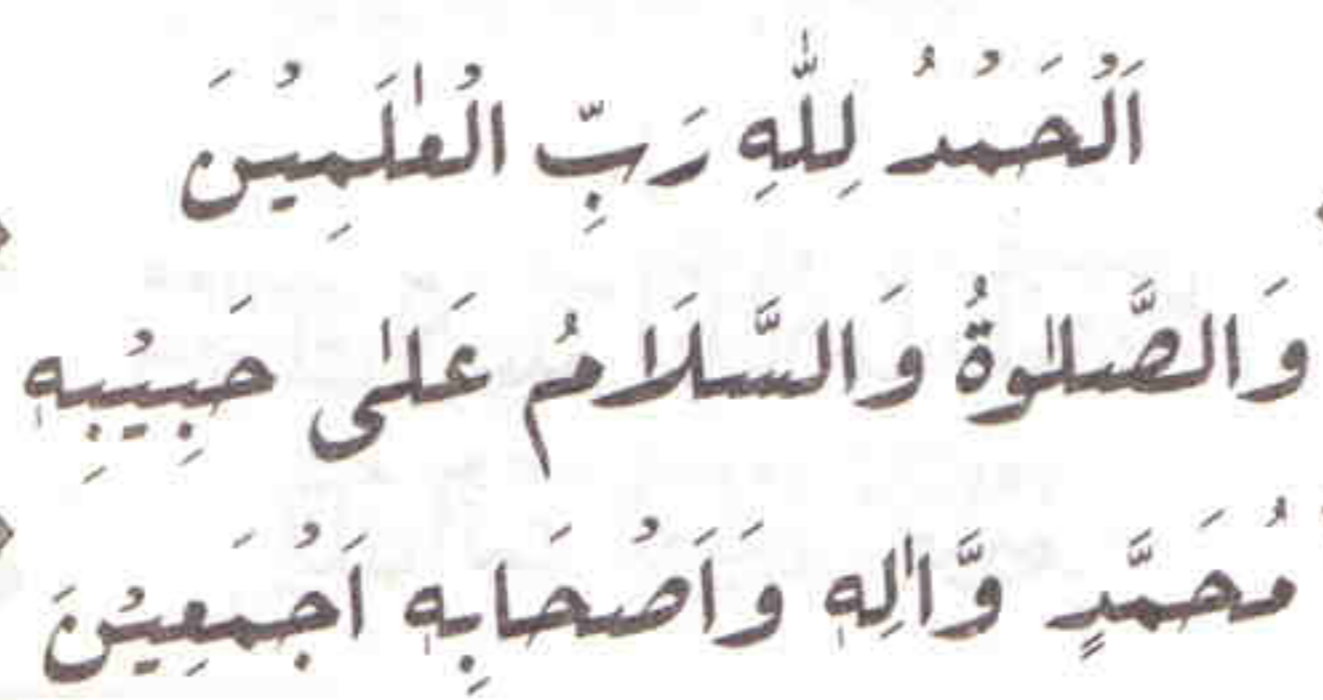 اَلْحَمْدُ لِلّٰهِ رَبِّ الْعٰلَمِيْنَ
وَالصَّلٰوةُ وَالسَّلَامُ عَلٰى حَبِيْبِهٖ
مُحَمَّدٍ وَّاٰلِهٖ وَاَصْحَابِهٖ اَجْمَعِيْنَ